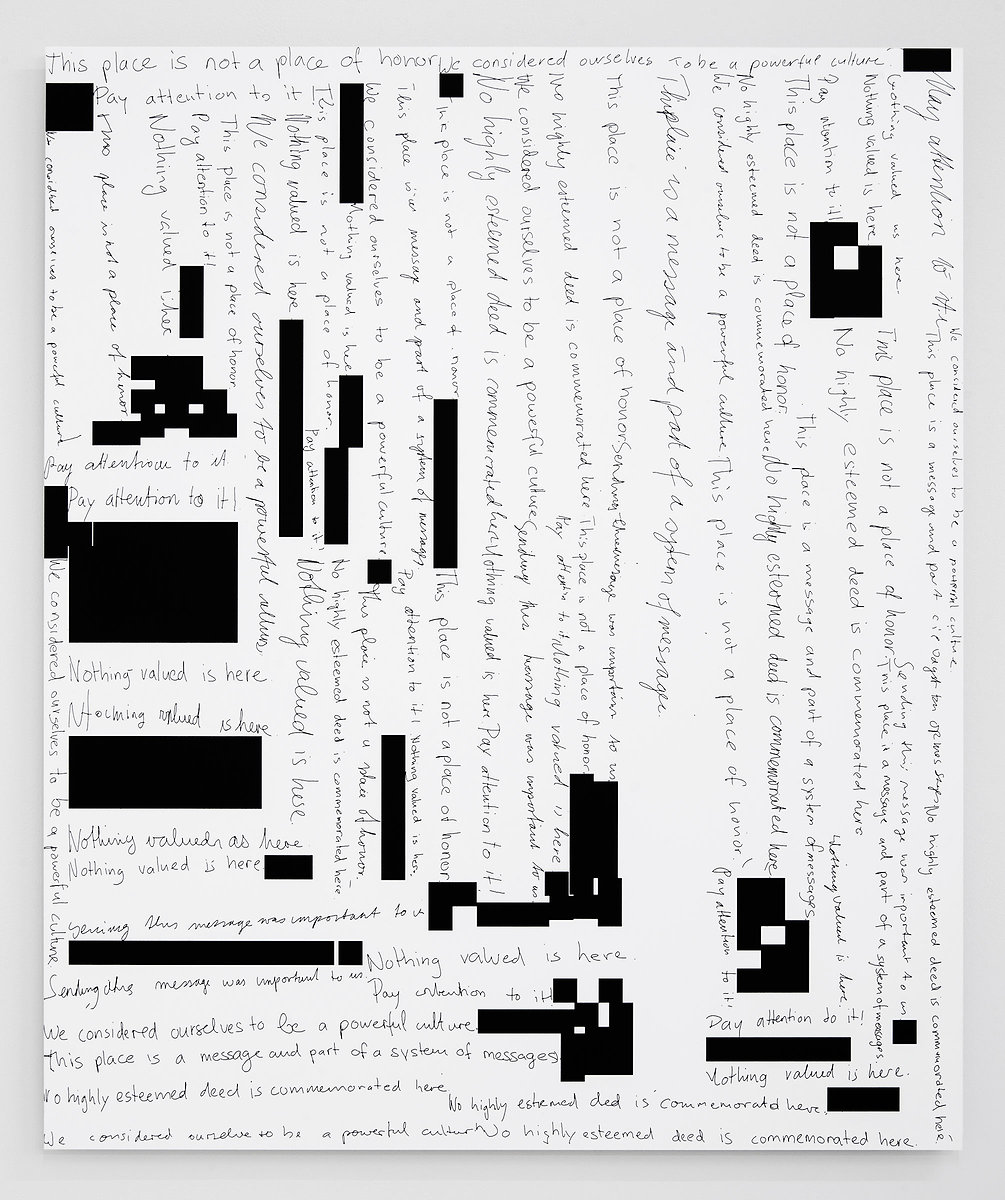 This place is not a place of honor
We considered ourselves to be a powerful culture.
Pay attention to it
We considered ourselves to be a powerful culture
This place is not a place of honor
Nothing valued is here
Pay attention to it!
This place is not a place of honor
We considered ourselves to be a powerful culture
Nothing valued is here
This place is not a place of honor.
Pay attention to it!
Nothing valued is here
We considered ourselves to be a powerful culture
This place is a message and part of a system of messages
This place is not a place of honor
No highly esteemed deed is commemorated here
Nothing valued is here
Pay attention to it!
We considered ourselves to be a powerful culture
Sending this message was important to us.
No highly esteemed deed is commemorated here
This place is not a place of honor
This place is not a place of honor
Sending this message was important to us
Pay attention to it
Nothing valued is here
This place is a message and part of a system of messages.
We considered ourselves to be a powerful culture
This place is not a place of honor.
No highly esteemed deed is commemorated here
No highly esteemed deed is commemorated here
This place is not a place of honor.
This place is a message and part of a system of messages
Pay attention to it!
No highly esteemed deed is commemorated here
Nothing valued is here
This place is not a place of honor
This place is a message and part of a system of messages
Nothing valued is here.
Sending this message was important to us
Pay attention to it
This place is a message and part
No highly esteemed deed is commemorated here
We considered ourselves to be a powerful culture
Pay attention to it
Pay attention to it!
We considered ourselves to be a powerful culture
Nothing valued is here
valued is here
Nothing valued is here
Nothing valued is here
Nothing valued is here
No highly esteemed deed is commemorated here
This place is not a place of honor
Pay attention to it!
Nothing valued is here
This place is not a place of honor
Sending this message was important to us
Sending this message was important to us.
Nothing valued is here.
Pay attention to it!
We considered ourselves to be a powerful culture
This place is a message and part of a system of messages
No highly esteemed deed is commemorated here
No highly esteemed deed is commemorated here.
We considered ourselve to be a powerful culture
No highly esteemed deed is commemorated here.
Pay attention to it!
Nothing valued is here.
Pay attention to it!
Nothing valued is here.